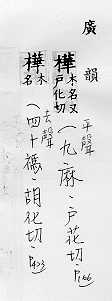 廣韻
樺 木名又戶化切
平聲(一九麻·戶花切·P166
樺 木名
去聲(四十禡·胡化切·P423